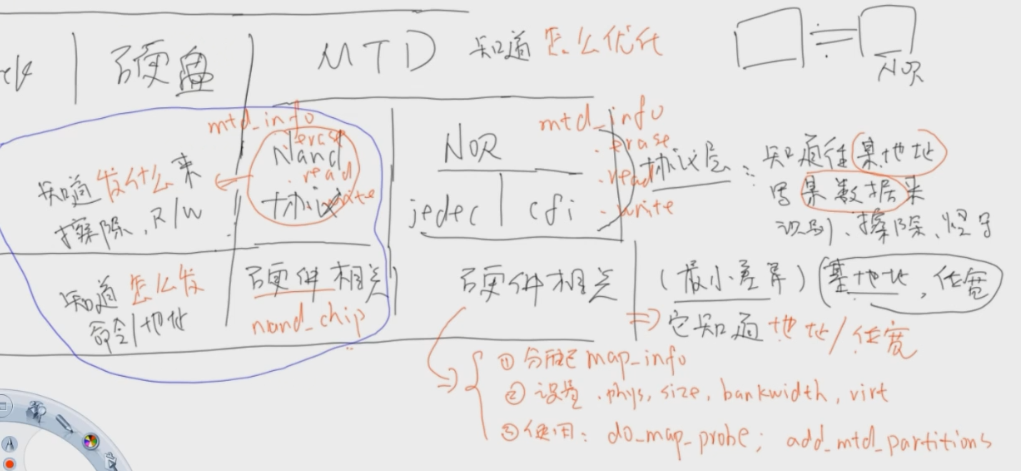 硬盘 MTD 知道怎么优化
NOR
mtd_info
.erase
.read
.write
Nand
协议
知道发什么来
擦除、R/W
NOR
jedec cfi
mtd_info
.erase
.read
.write
协议层: 知道往某地址
写某数据来
识别、擦除、烧写
知道怎么发
命令/地址
硬件相关
nand_chip
硬件相关
(最小差异) 基地址, 位宽
=> 它知道地址/位宽
① 分配 map_info
② 设置 .phys, size, bankwidth, virt
③ 使用: do_map_probe; add_mtd_partitions